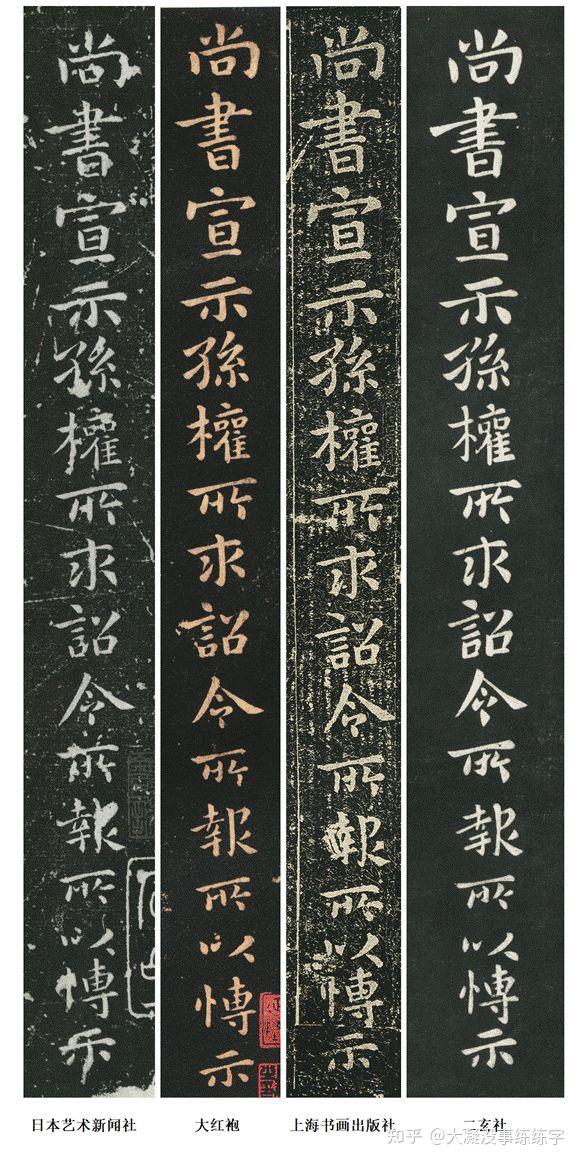 尚書宣示孫權所求詔令所報所以愽示
尚書宣示孫權所求詔令所報所以愽示
尚書宣示孫權所求詔令所報所以愽示
尚書宣示孫權所求詔令所報所以愽示
日本艺术新闻社
大红袍
上海书画出版社
二玄社
知乎 @大凝没事练练字